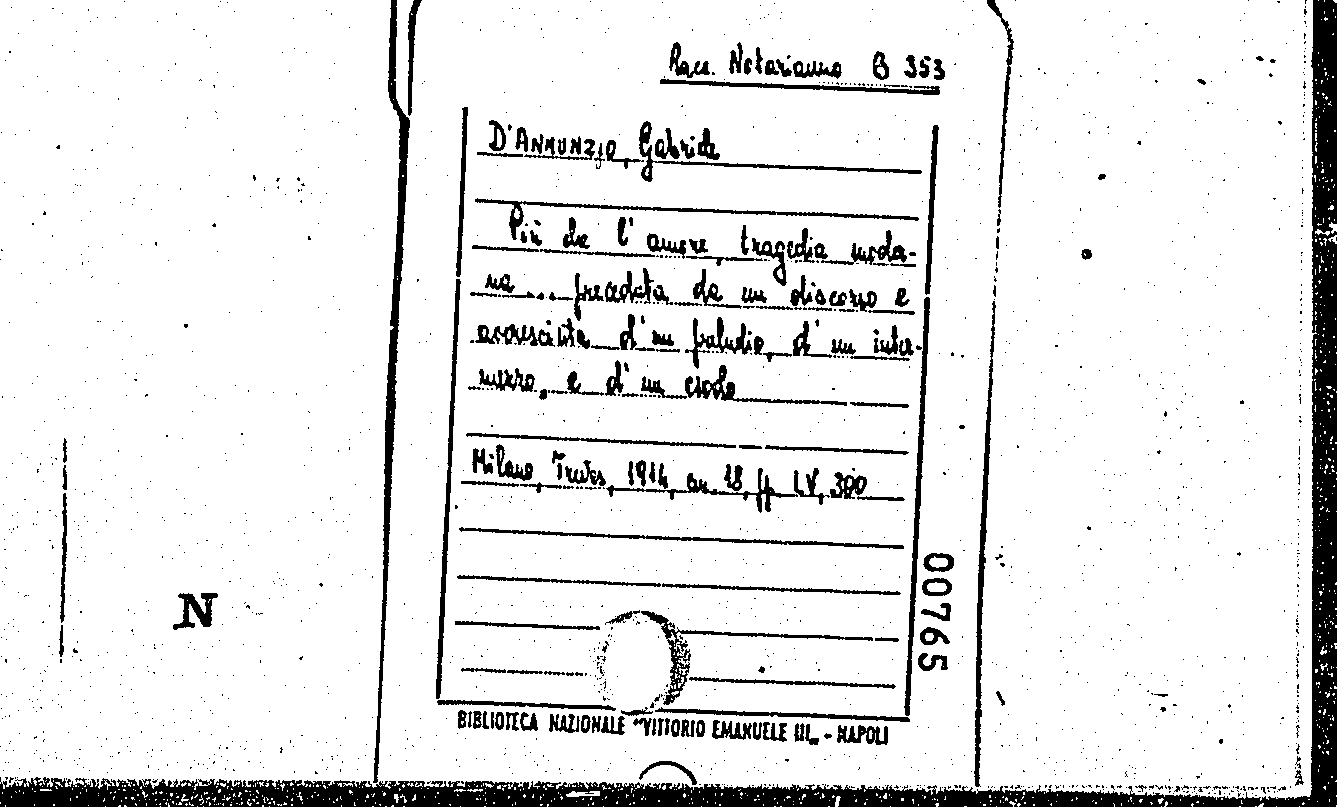 Racc. Notarianno B 353
D'ANNUNZIO, Gabriele
Più che l'amore, tragedia moder-
na ... preceduta da un discorso e
accresciuta d'un preludio, d'un inter-
mezzo, e d'un esodo
Milano, Treves, 1914, an. 18, pp. LV, 300
00765
N
BIBLIOTECA NAZIONALE "VITTORIO EMANUELE III„ - NAPOLI